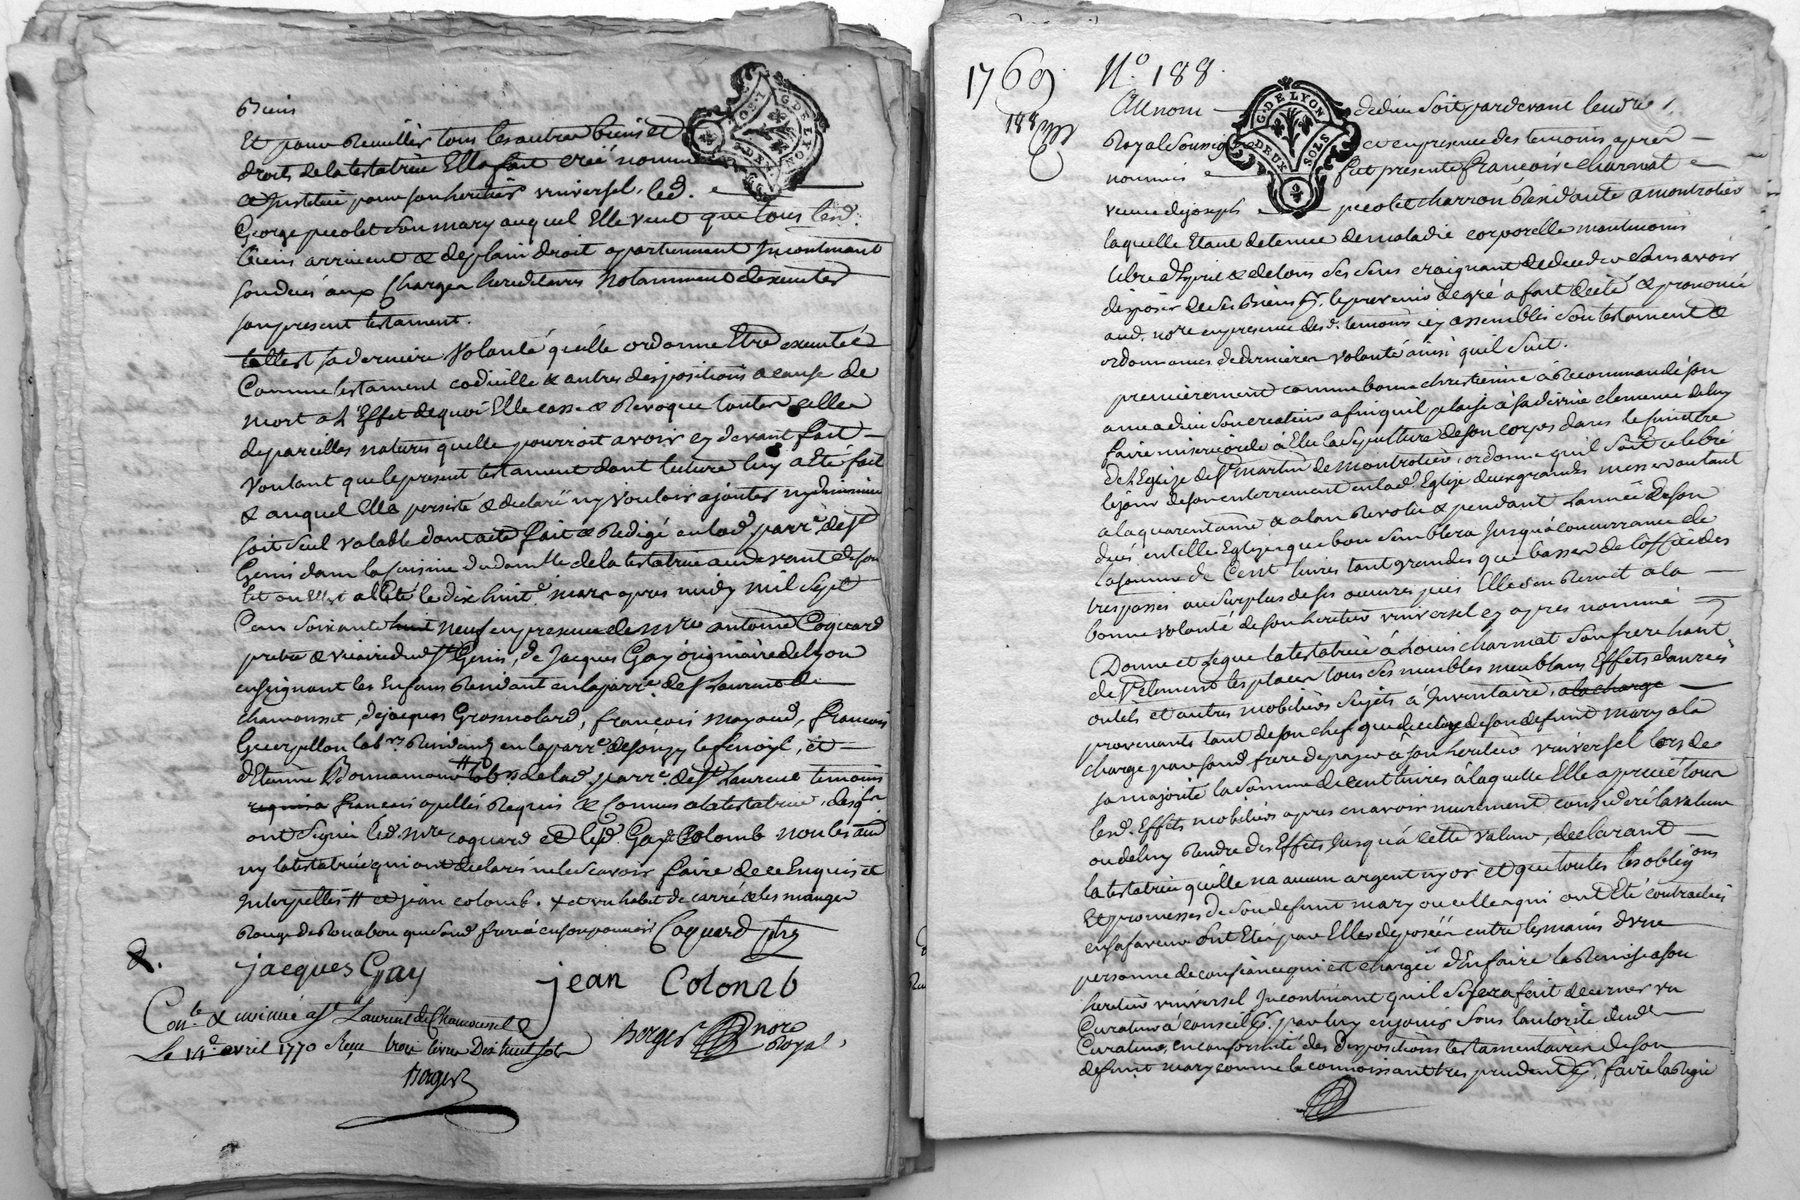 Biens
Et pour Recuillir tous les autres biens et
droits de la testatrice Ella fait creé nommé
& Institué pour son heritier vniversel, led.
George pecolet son mary auquel Elle veut que tous lesd.
biens arrivent & de plain droit apartiennent Incontinant
son decés aux Charges hereditaires Notamment d'executer
son present testament.
telle est sa derniere Volonté quelle ordonne Etre executée
Comme testament codicille & autres despositions a cause de
mort a L'Effet de quoi Elle casse & Revoque toutes celles
de pareilles natures quelle pourroit avoir cy devant fait
Voulant que le present testament dont lecture luy a Eté fait
& auquel Ella persisté & declaré ny vouloir ajouter ny diminuer
soit seul valable dont acte fait & Redigé en lad. parr.e de St
Genis dans la cuisine du domicille de la testatrice au devant de son
lit ou Elle est allitée le dix huit mars apres midy mil sept
Cens soixante huit neuf en presence de mre antoine Coquard
pretre & vicaire dud. St Genis, de Jacques Gay originaire de Lyon
enseignant les Enfans Residant en la parr.e de St Laurent de
chamousset, de jacques Grosmolard, françois mayoud, françois
Guerpillon lab.rs Residants en la parr.e de
d'Etienne Bonnamour # lab.r de lad. parr.e de St Laurent temoins
requis a francois apellés Requis & Connus a la testatrice, desq.ls
ont signé led. mre coquard et led. Gay & Colomb non les au.
ny la testatrice qui ont declarés ne le scavoir faire de ce Enquis et
Interpellés # et jean colomb. x et vn habit de carré
Coquard ptre
jacques Gay
jean Colomb
Con.lé & insinué a St Laurent de Chamousset
Le 14e avril 1770 Reçu trois livres Dix huit sols
Borges nore Royal,
Borges
1769
N.o 188
188
G. DE LYON
DEUX SOLS
Au nom de dieu soit pardevant le notre
Royal soussigné & en presence des temoins apres
nommés fut presente francoise charmat
veuve de joseph pecolet charron Residante a montrotier
laquelle Etant detenue de maladie corporelle neantmoins
libre d'Esprit & de tous ses sens craignant de deceder sans avoir
desposér de ses Biens & le prevenir de gré a fait dicté & prononcé
aud. nore en presence desd. temoins icy assemblés son testament &
ordonnances de derniere volonté ainsi quil suit.
premierement comme bonne chrestienne a Recommandé son
ame a dieu son createur afin quil plaise a sa divine clemence de luy
faire misericorde à Elu la sepulture de son corps dans le cimettre
de l'Eglize de St martin de montrotier, ordonne quil soit celebré
le jour de son enterrement en lad. Eglize deux grandes messes autant
a la quarentaine & a l'an Revolu & pendant l'année de son
decés en telle Eglize que bon semblera jusqu'a concurrance de
la somme de Cent livres tant grandes que basses de l'office des
trespassés au surplus de ses œuvres pies Elle s'en Remet a la
bonne volonté de son heritier vniversel cy apres nommé
Donne et Legue la testatrice à Louis charmat son frere
de St Clement les places tous ses meubles meublans Effets danrées
outils et autres mobiliers sujets à Inventaire, a la charge
provenants tant de son chef que de celuy de son defunt mary a la
charge par sond. frere de payer a son heritier vniversel lors de
sa majorité la somme de Cent livres à laquelle Elle aprecié tous
lesd. Effets mobiliers apres en avoir murement consideré la valeur
ou de luy Rendre des Effets jusqu'à cette valeur, declarant
la testatrice quelle na aucun argent ny or et que toutes les oblig.ons
Et promesses de son defunt mary ou celles qui ont Eté contractées
en sa faveur ont Eté par Elle deposées entre les mains d'vne
personne de confiance qui est chargée d'En faire la Remise a son
heritier vniversel Incontinant quil se sera fait decerner vn
Curateur à conseil & par luy en jouir sous l'autorité dud.
Curateur, en conformité des dispositions testamentaires de son
defunt mary comme le connoissant tres prudent & faire la Regie